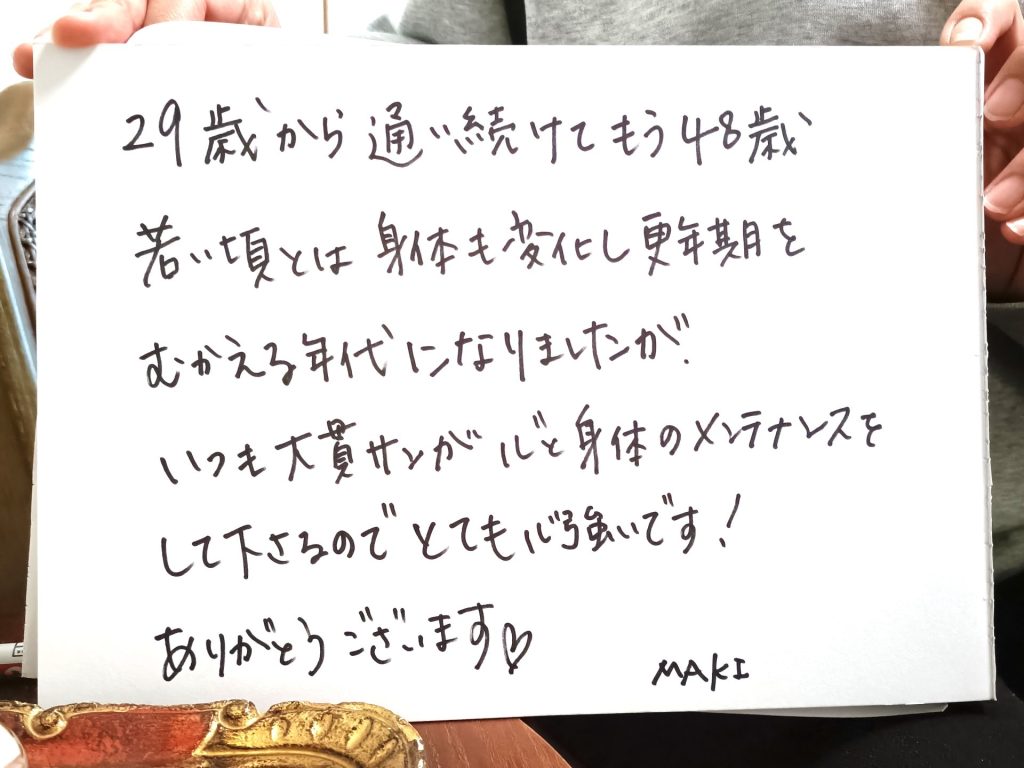 29歳から通い続けてもう48歳
若い頃とは身体も変化し更年期を
むかえる年代になりましたが
いつも大貫サンが心と身体のメンテナンスを
して下さるのでとても心強いです!
ありがとうございます♡
MAKI